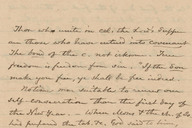 Thos who unite in cel. the Lord's Supper
are those who have entered into covenant
The sons of the c. not taken. True
freedom is freedom from sin. If the Son
make you free, ye shall be free indeed.
Nothing was suitable to renew our
self-consecration than the first day of
the New Year. When Moses & the ch. of Is.
had prepared the tab. &c. God said to him